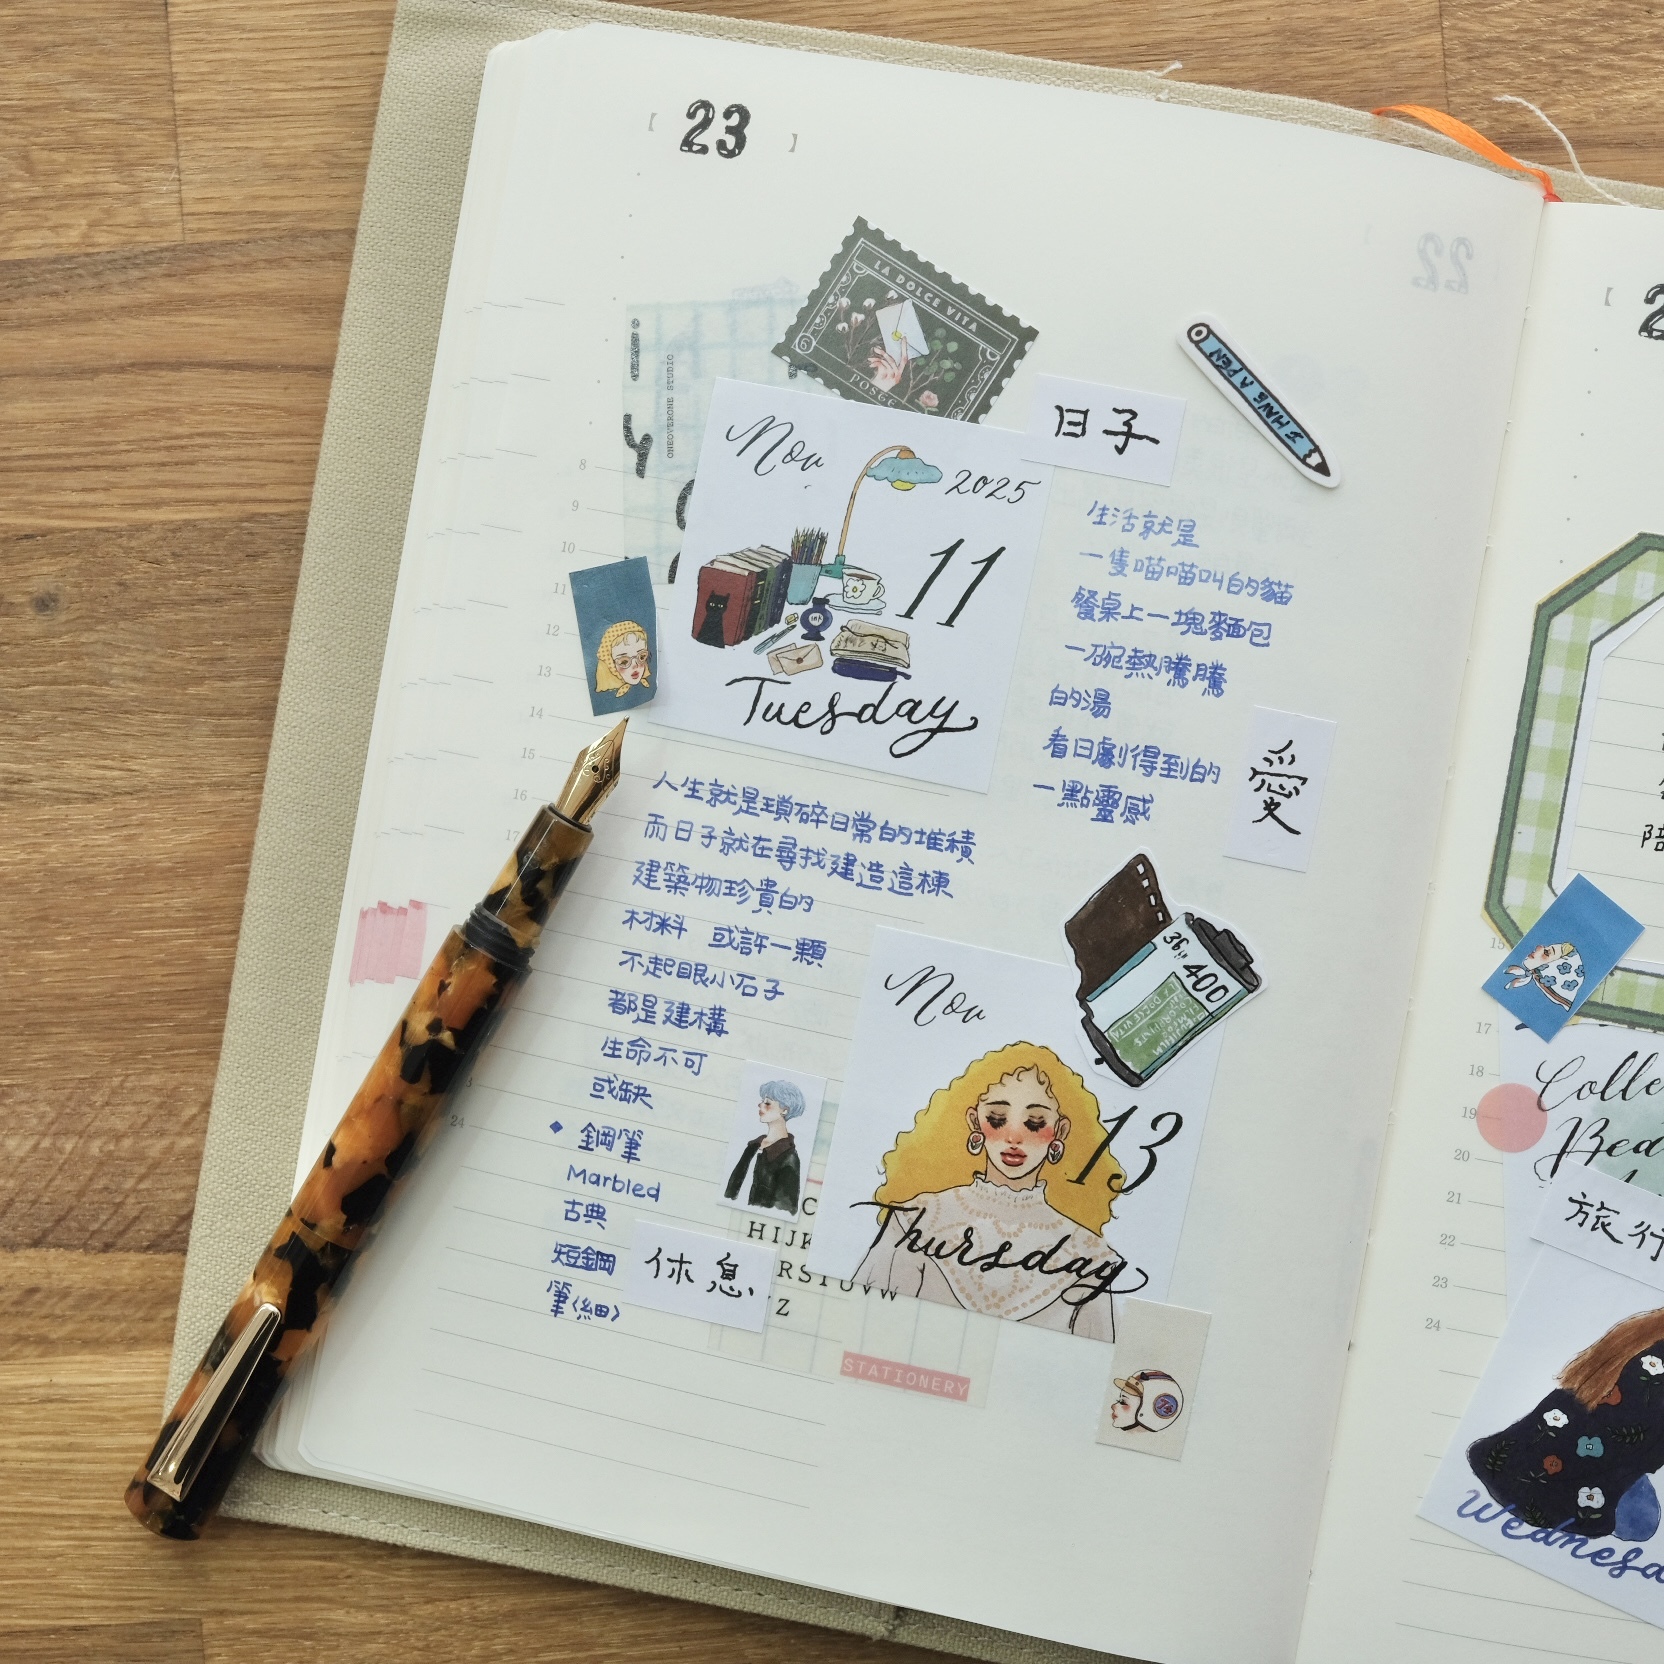 23
LA DOLCE VITA
6
POSGE
ONEOVERONE STUDIO
I HAVE A PEN
日子
Nov
2025
11
INK
Tuesday
生活就是
一隻喵喵叫的貓
餐桌上一塊麵包
一碗熱騰騰
的湯
看日劇得到的
一點靈感
愛
8
9
10
11
12
13
14
15
16
17
24
人生就是瑣碎日常的堆積
而日子就在尋找建造這棟
建築物珍貴的
材料 或許一顆
不起眼小石子
都是建構
生命不可
或缺
鋼筆
Marbled
古典
短鋼
筆(細)
休息
36
400
Nov
13
Thursday
HIJK
RSTUVW
YZ
STATIONERY
74
陪
15
17
18
19
20
21
22
23
24
旅行